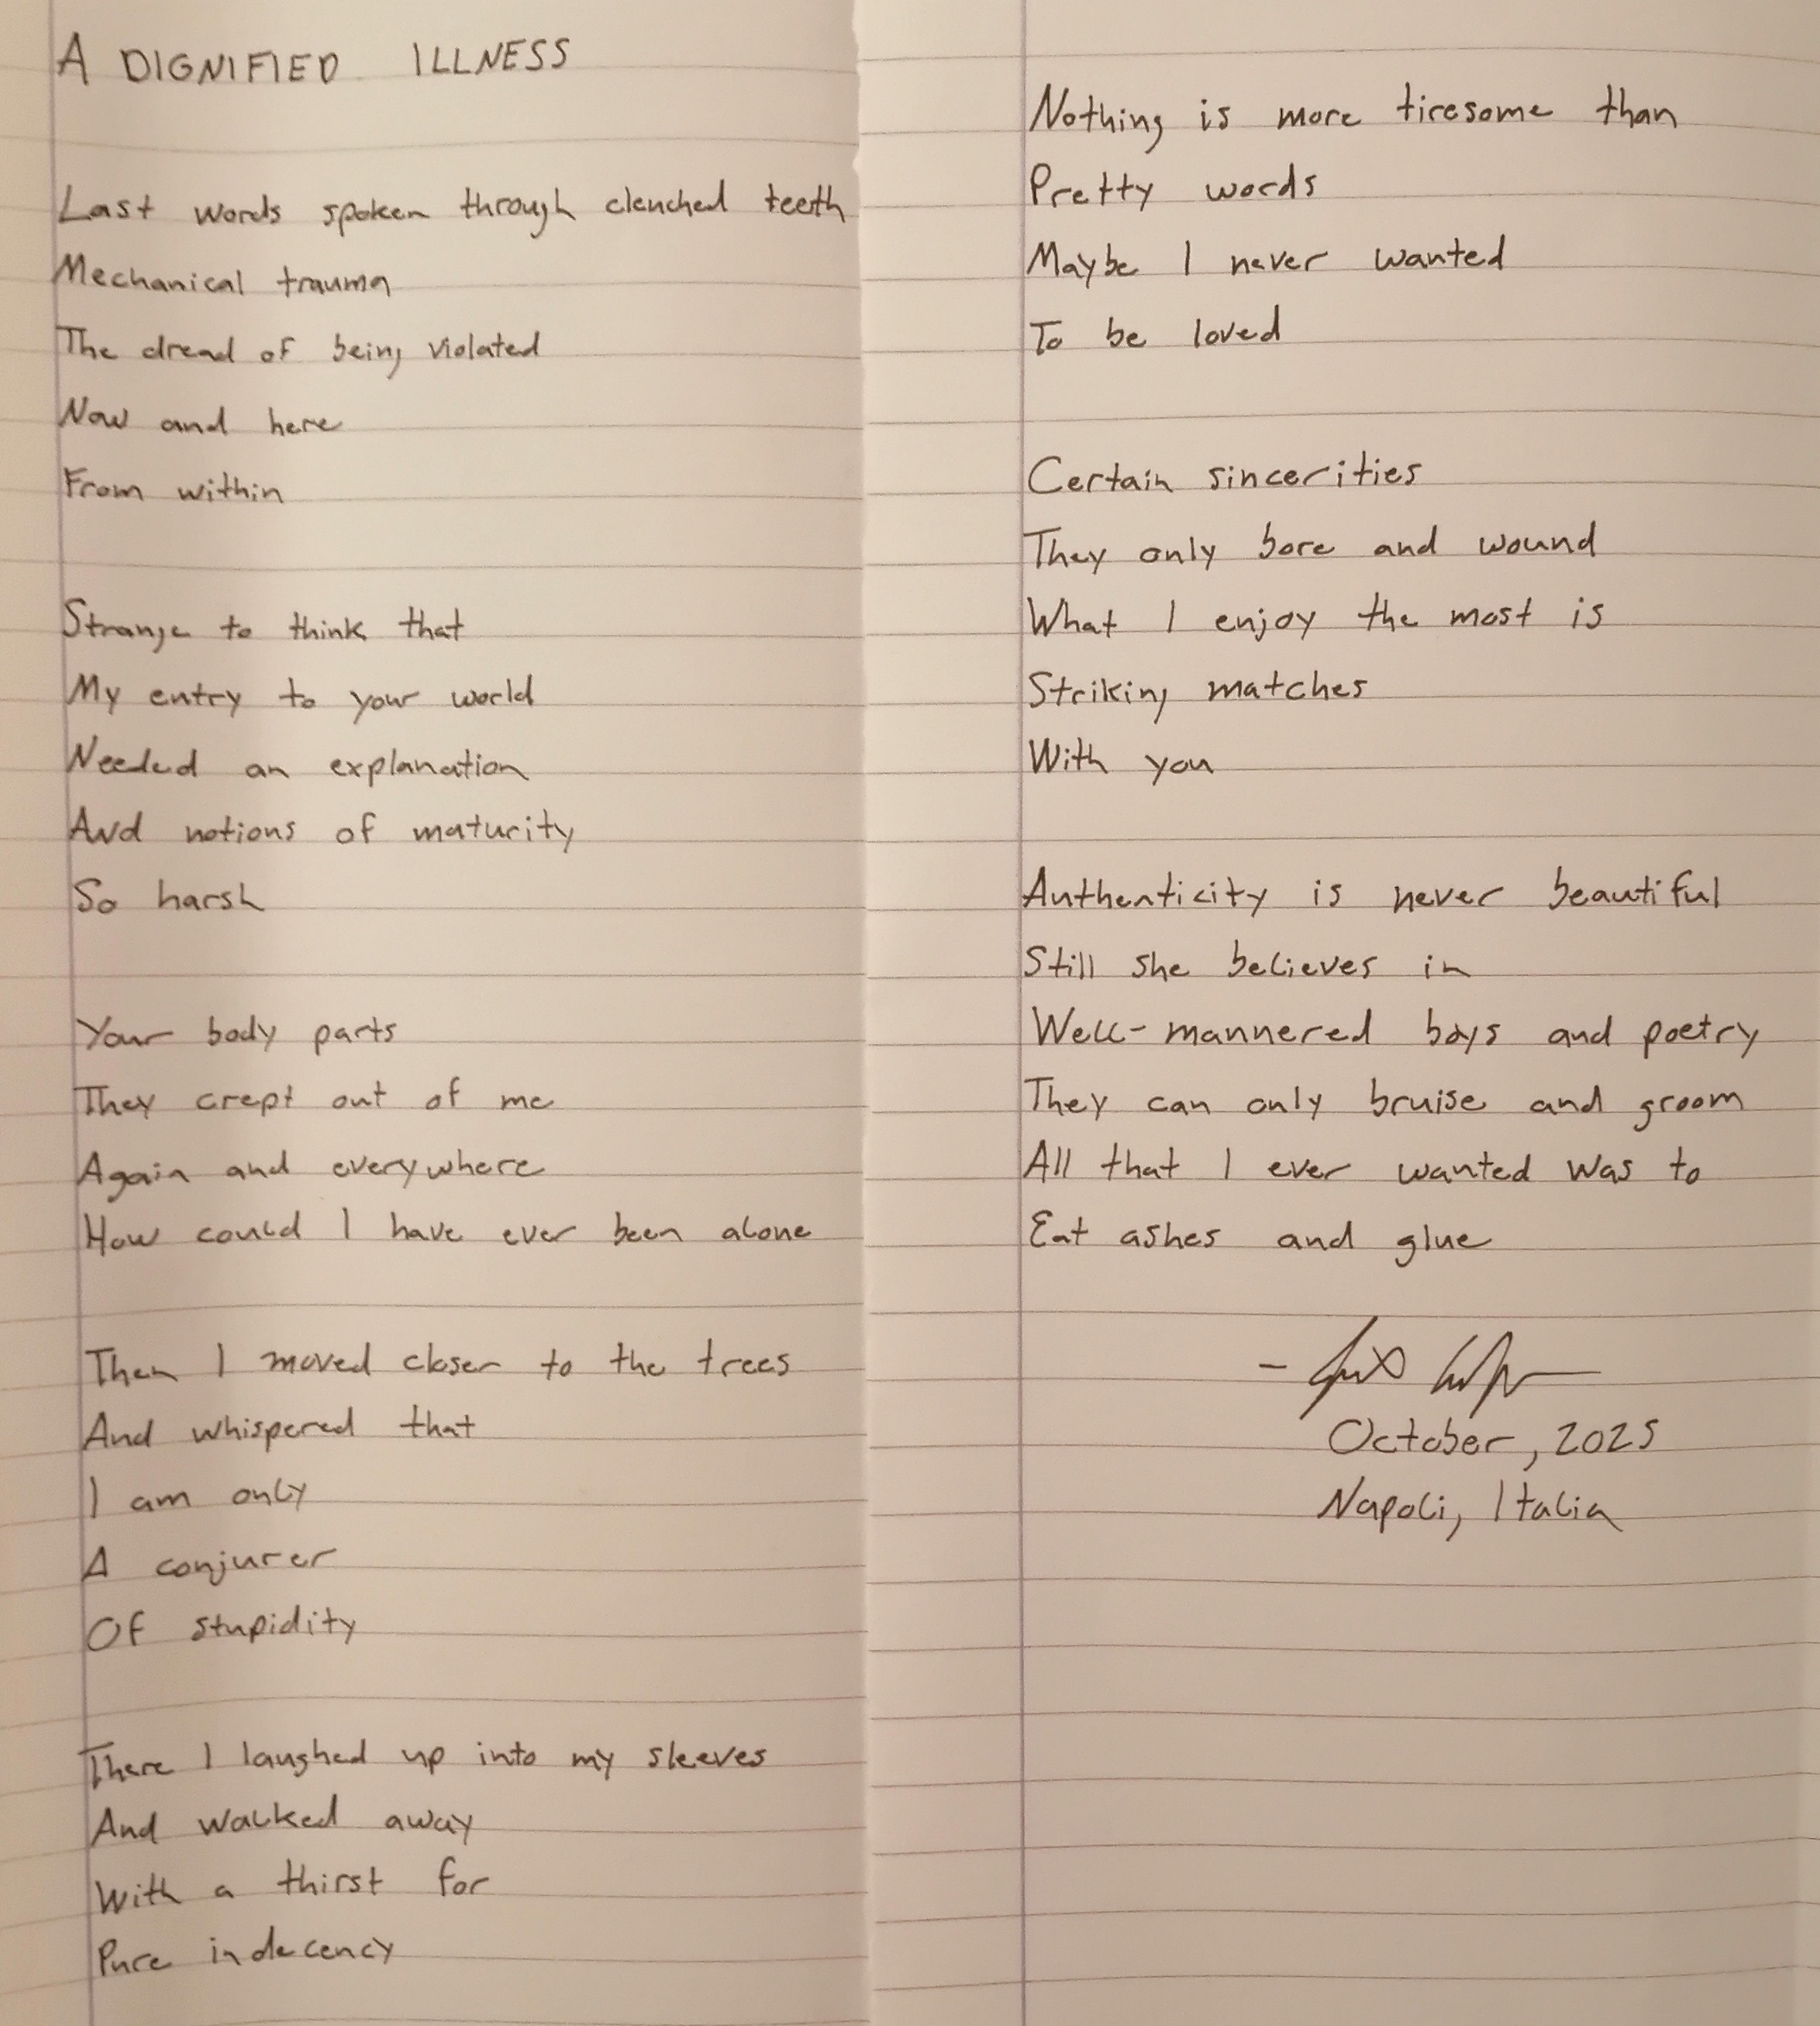 A DIGNIFIED ILLNESS
Last words spoken through clenched teeth
Mechanical trauma
The dread of being violated
Now and here
From within
Strange to think that
My entry to your world
Needed an explanation
And notions of maturity
So harsh
Your body parts
They crept out of me
Again and everywhere
How could I have ever been alone
Then I moved closer to the trees
And whispered that
I am only
A conjurer
Of stupidity
There I laughed up into my sleeves
And walked away
With a thirst for
Pure indecency
Nothing is more tiresome than
Pretty words
Maybe I never wanted
To be loved
Certain sincerities
They only bore and wound
What I enjoy the most is
Striking matches
With you
Authenticity is never beautiful
Still she believes in
Well-mannered boys and poetry
They can only bruise and groom
All that I ever wanted was to
Eat ashes and glue
October, 2025
Napoli, Italia